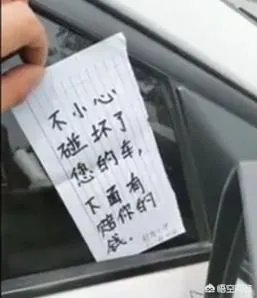 不小心
碰坏了
您的车,
下面有
赔你的
钱.
悟空问答